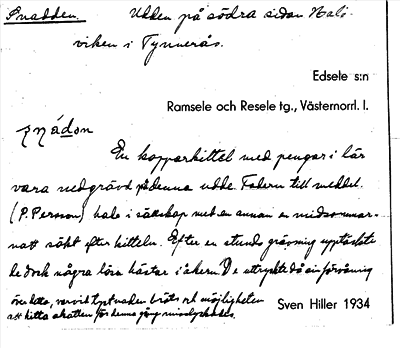 Snadden. Udden på södra sidan Hals-
viken i Tynnerås.
Edsele s:n
Ramsele och Resele tg., Västernorrl. l.
En kopparkittel med pengar i lär
vara nedgrävd på denna udde. Fadern till meddel.
(P. Person) hade i sällskap med en annan en midsommar-
natt sökt efter kitteln. Efter en stunds grävning upptäckte
de dock några lösa hästar i åkern. De uttryckte då sin förvåning
över detta, varvid tystnaden bröts och möjligheten
att hitta skatten för denna gång misslyckades.
Sven Hiller 1934